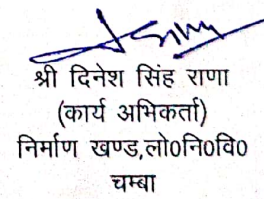 श्री दिनेश सिंह राणा
(कार्य अभिकर्ता)
निर्माण खण्ड,लो0नि0वि0
चम्बा